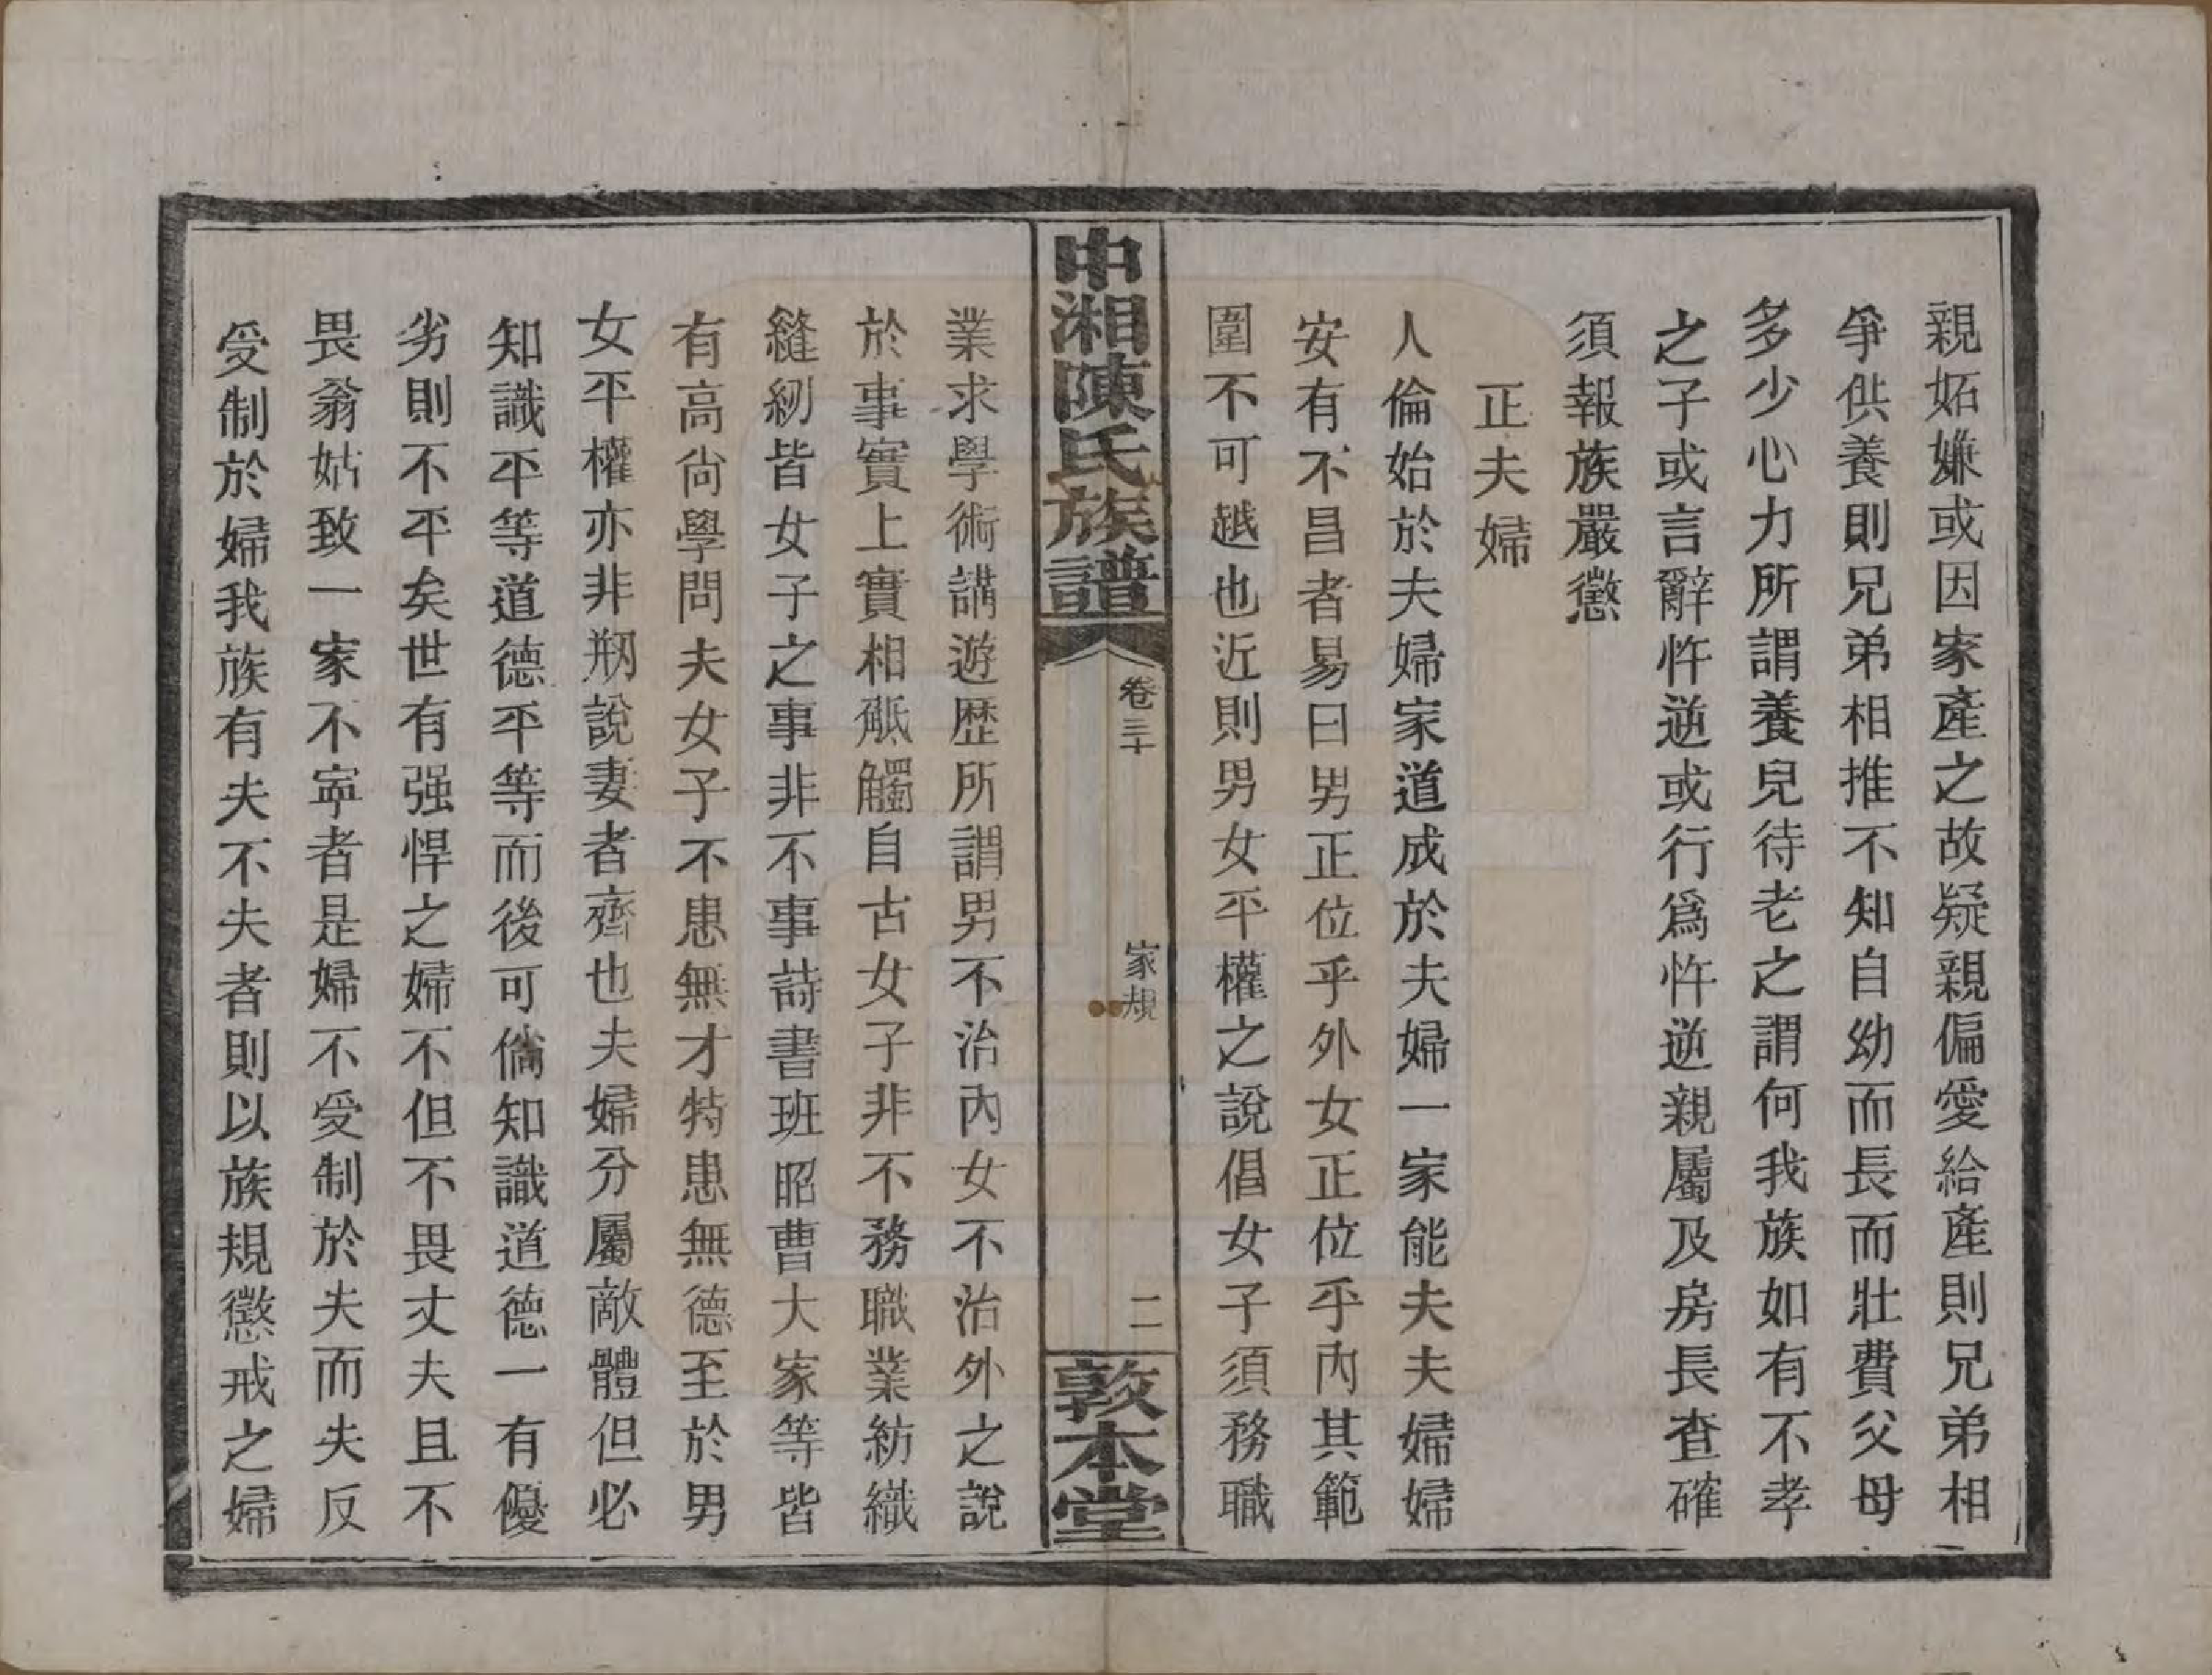 親妬嫌或因家產之故疑親偏愛給產則兄弟相
爭供養則兄弟相推不知自幼而長而壯費父母
多少心力所謂養兒待老之謂何我族如有不孝
之子或言辭忤逆或行爲忤逆親屬及房長查確
須報族嚴懲
正夫婦
人倫始於夫婦家道成於夫婦一家能夫夫婦婦
安有不昌者易曰男正位乎外女正位乎內其範
圍不可越也近則男女平權之說倡女子須務職
中湘陳氏族譜
卷三十
家規
二
敦本堂
業求學術講遊歷所謂男不治內女不治外之說
於事實上實相牴觸自古女子非不務職業紡織
縫紉皆女子之事非不事詩書班昭曹大家等皆
有高尙學問夫女子不患無才特患無德至於男
女平權亦非剏說妻者齊也夫婦分屬敵體但必
知識平等道德平等而後可倘知識道德一有優
劣則不平矣世有强悍之婦不但不畏丈夫且不
畏翁姑致一家不寧者是婦不受制於夫而夫反
受制於婦我族有夫不夫者則以族規懲戒之婦